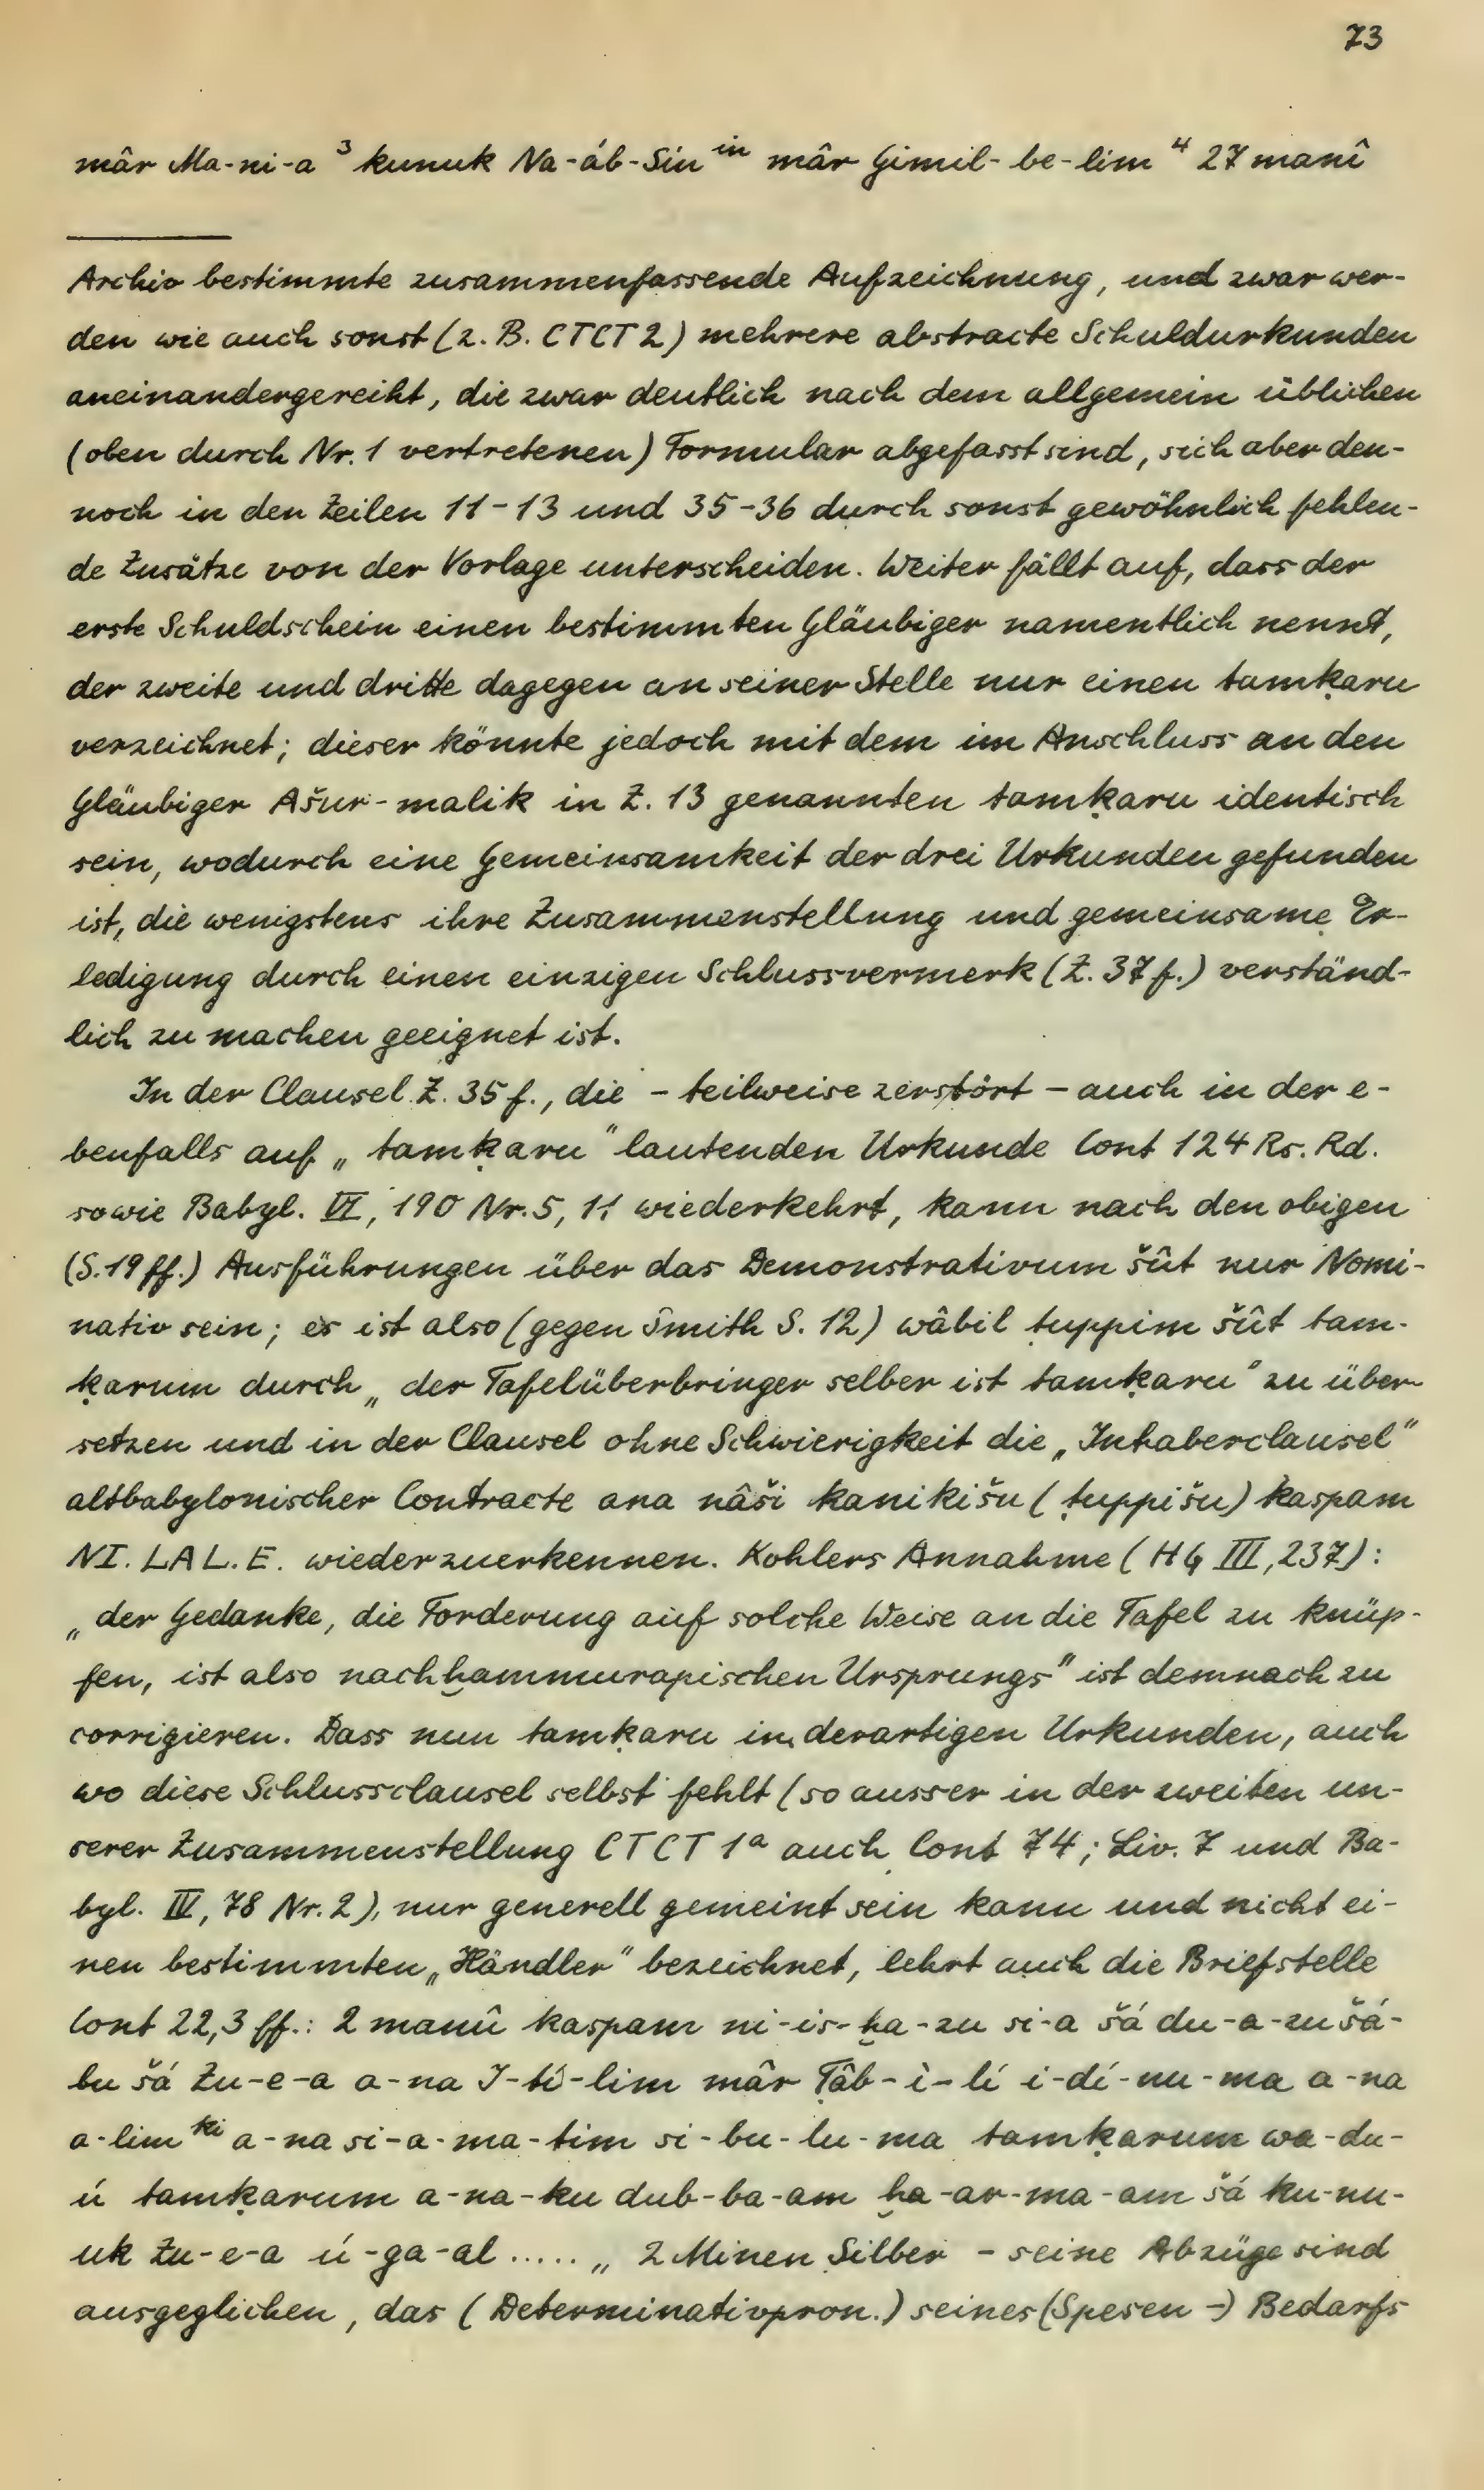 73
mâr Ma-ni-a ³ kunuk Na-áb-Sin ⁱⁿ mâr Gimil-be-lim ⁴ 27 manî
Archiv bestimmte zusammenfassende Aufzeichnung, und zwar wer-
den wie auch sonst (z. B. CTCT 2) mehrere abstracte Schuldurkunden
aneinandergereiht, die zwar deutlich nach dem allgemein üblichen
(oben durch Nr. 1 vertretenen) Formular abgefasst sind, sich aber den-
noch in den Zeilen 11-13 und 35-36 durch sonst gewöhnlich fehlen-
de Zusätze von der Vorlage unterscheiden. Weiter fällt auf, dass der
erste Schuldschein einen bestimmten Gläubiger namentlich nennt,
der zweite und dritte dagegen an seiner Stelle nur einen tamḳaru
verzeichnet; dieser könnte jedoch mit dem im Anschluss an den
Gläubiger Ašur-malik in Z. 13 genannten tamḳaru identisch
sein, wodurch eine Gemeinsamkeit der drei Urkunden gefunden
ist, die wenigstens ihre Zusammenstellung und gemeinsame Er-
ledigung durch einen einzigen Schlussvermerk (Z. 37 f.) verständ-
lich zu machen geeignet ist.
In der Clausel Z. 35 f., die - teilweise zerstört - auch in der e-
benfalls auf „tamḳaru" lautenden Urkunde Cont 124 Rs. Rd.
sowie Babyl. VI, 190 Nr. 5, 11 wiederkehrt, kann nach den obigen
(S. 19 ff.) Ausführungen über das Demonstrativum šût nur Nomi-
nativ sein; es ist also (gegen Smith S. 12) wâbil ṭuppim šût tam-
ḳarum durch „der Tafelüberbringer selber ist tamḳaru" zu über-
setzen und in der Clausel ohne Schwierigkeit die „Inhaberclausel"
altbabylonischer Contracte ana nâši kanikišu (ṭuppišu) kaspam
NI. LAL. E. wiederzuerkennen. Kohlers Annahme (HG III, 237):
„der Gedanke, die Forderung auf solche Weise an die Tafel zu knüp-
fen, ist also nachḫammurapischen Ursprungs" ist demnach zu
corrigieren. Dass nun tamḳaru in derartigen Urkunden, auch
wo diese Schlussclausel selbst fehlt (so ausser in der zweiten un-
serer Zusammenstellung CTCT 1ᵃ auch Cont 74; Liv. 7 und Ba-
byl. IV, 78 Nr. 2), nur generell gemeint sein kann und nicht ei-
nen bestimmten „Händler" bezeichnet, lehrt auch die Briefstelle
Cont 22,3 ff.: 2 manû kaspam ni-is-ḫa-zu si-a šá du-a-zu šá-
bu šá Zu-e-a a-na I-ti-lim mâr Ṭâb-ì-lí i-dí-nu-ma a-na
a-lim ᵏⁱ a-na si-a-ma-tim si-bu-lu-ma tamḳarum wa-du-
ú tamḳarum a-na-ku dub-ba-am ḫa-ar-ma-am šá ku-nu-
uk Zu-e-a ú-ga-al ..... „2 Minen Silber - seine Abzüge sind
ausgeglichen, das (Determinativpron.) seines (Spesen-) Bedarfs